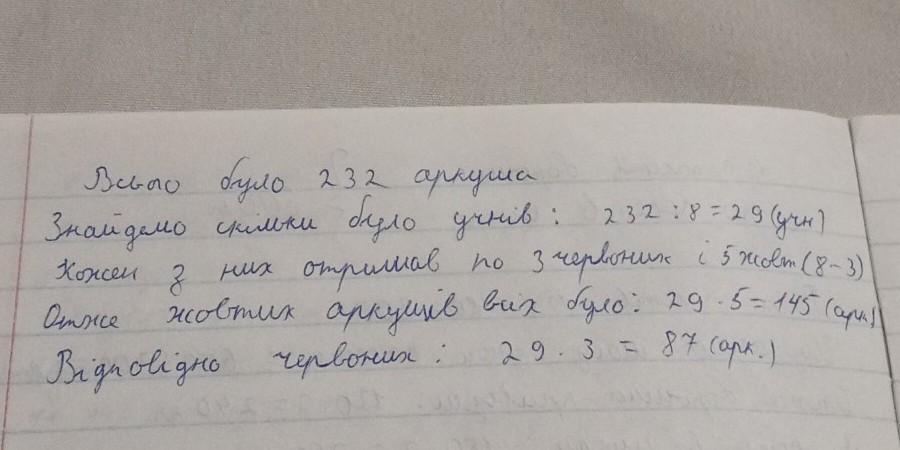 Всього було 232 аркуша
Знайдемо скільки було учнів: 232 : 8 = 29 (учн)
Кожен з них отримав по 3 червоних і 5 жовт (8-3)
Отже жовтих аркушів всіх було: 29 · 5 = 145 (арк.)
Відповідно червоних: 29 · 3 = 87 (арк.)